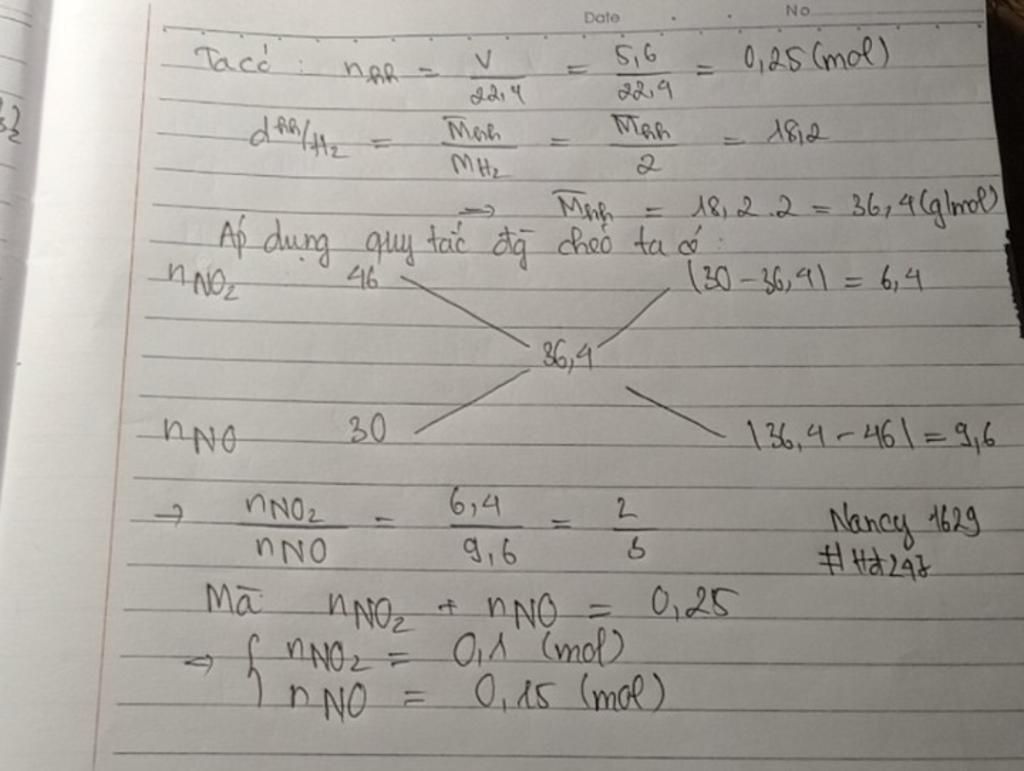 Date . . No
Ta có : nhh = V/22,4 = 5,6/22,4 = 0,25 (mol)
dhh/H₂ = M̅hh/MH₂ = M̅hh/2 = 18,2
→ M̅hh = 18,2.2 = 36,4 (g/mol)
Áp dụng quy tắc đg chéo ta có :
nNO₂ 46 |30 - 36,4| = 6,4
36,4
nNO 30 |36,4 - 46| = 9,6
→ nNO₂/nNO = 6,4/9,6 = 2/3
Nancy 1629
Mà nNO₂ + nNO = 0,25
⇒ { nNO₂ = 0,1 (mol)
nNO = 0,15 (mol)